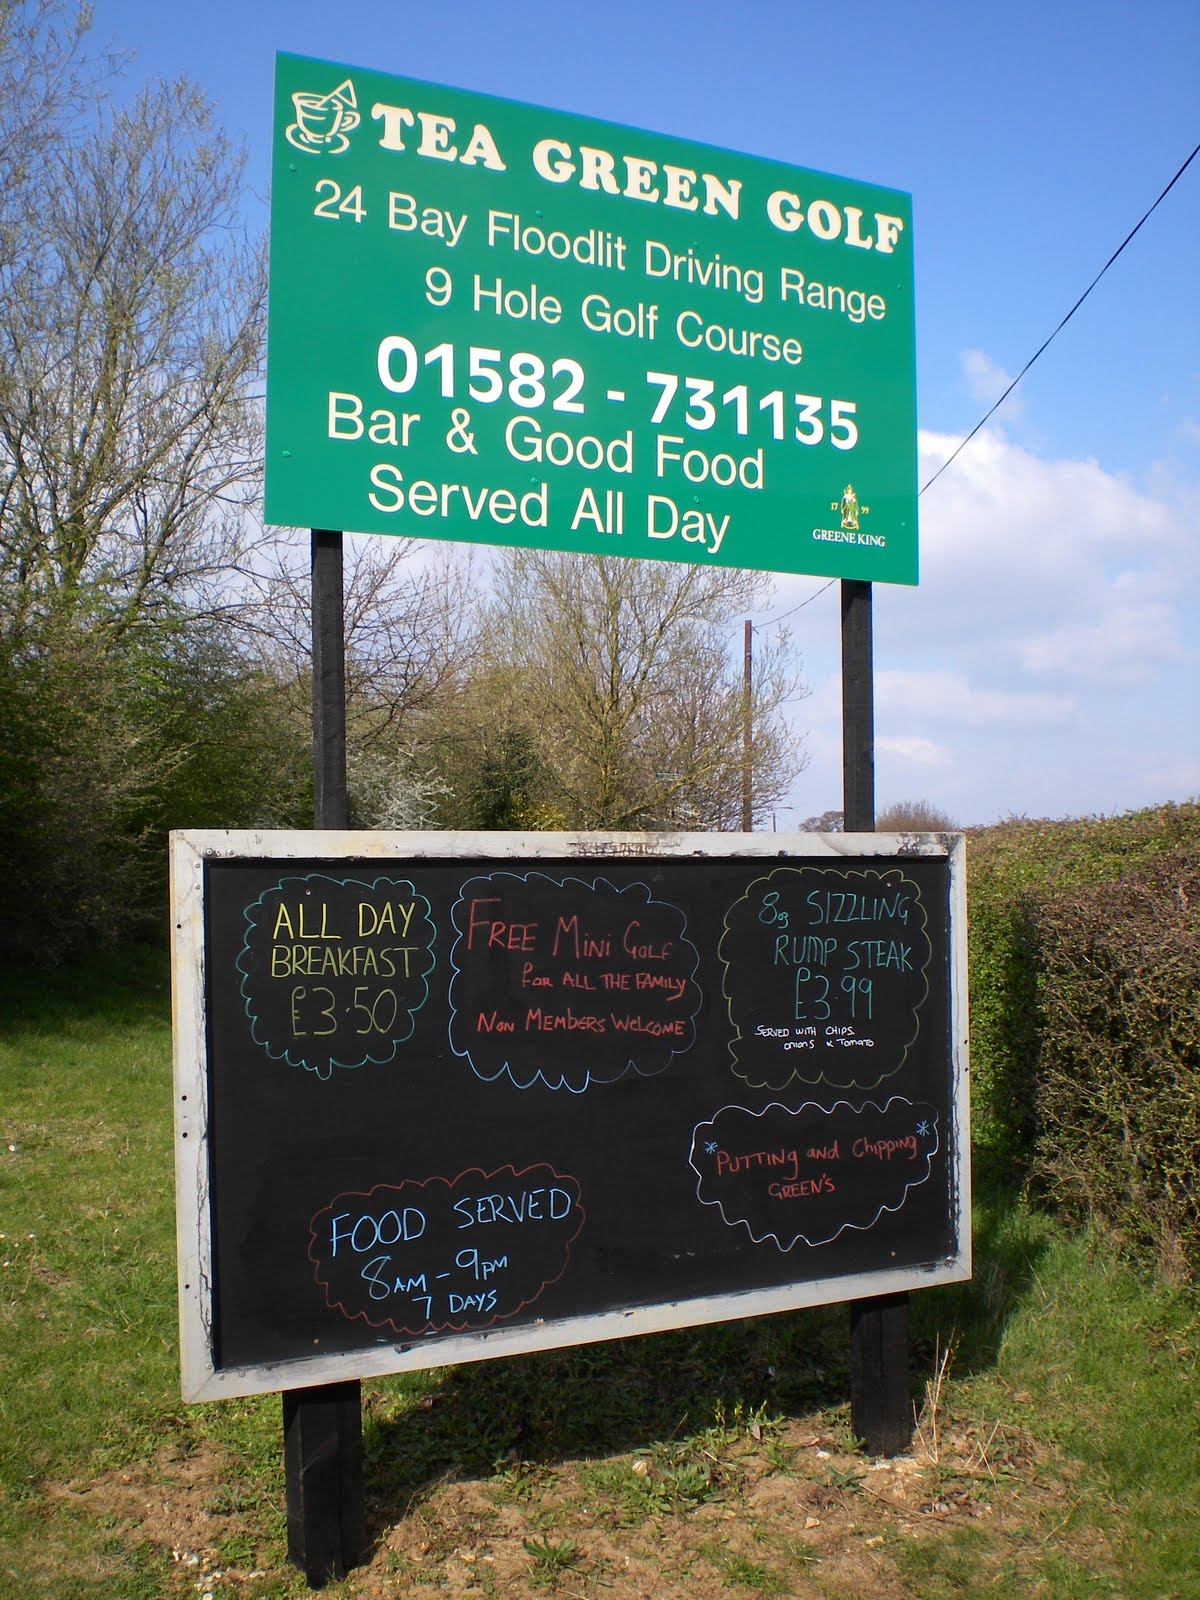 TEA GREEN GOLF
24 Bay Floodlit Driving Range
9 Hole Golf Course
01582 - 731135
Bar & Good Food
Served All Day
17 99
GREENE KING
ALL DAY
BREAKFAST
£3.50
FREE MINI GOLF
for ALL THE FAMILY
NON MEMBERS WELCOME
8oz SIZZLING
RUMP STEAK
£3.99
SERVED WITH CHIPS.
ONIONS & TOMATO
*PUTTING and Chipping*
GREEN'S
FOOD SERVED
8AM - 9PM
7 DAYS